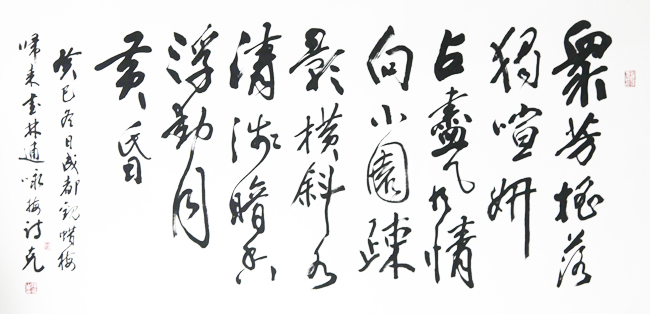 眾芳搖落
獨喧妍
占盡風情
向小園疎
影橫斜水
清淺暗香
浮動月
黃昏
癸巳冬日成都觀蜡梅
歸來書林逋咏梅詩